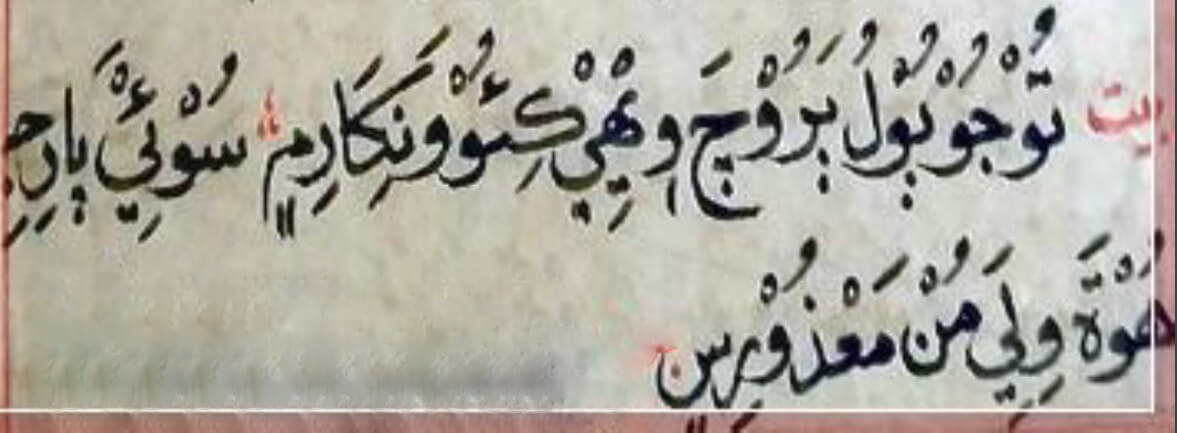 بيت تُوْجُوْ ٻُوْلُ ٻَرُوْچَ وِيْهِيْ ڪِئُوْ وَنِڪَارِ مِ سُوْئِيْ پَارِجِ
هُوْتَ وِلَيِ مُنْ مَعْذُوْرِ سِن